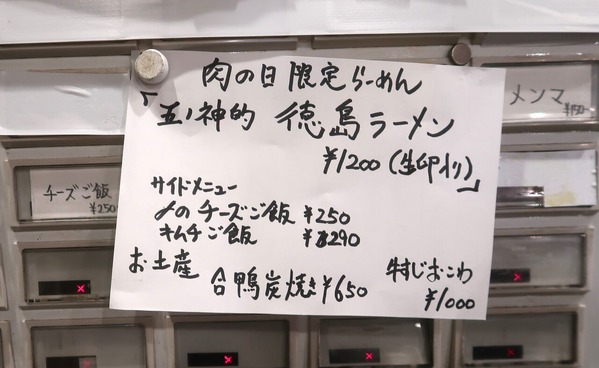 肉の日限定らーめん
「五ノ神的 徳島ラーメン
¥1200(生卵入り)」
サイドメニュー
〆のチーズご飯 ¥250
キムチご飯 ¥290
お土産
合鴨炭焼き¥650
牛すじおこわ
¥1000
チーズご飯
¥250
メンマ
¥150